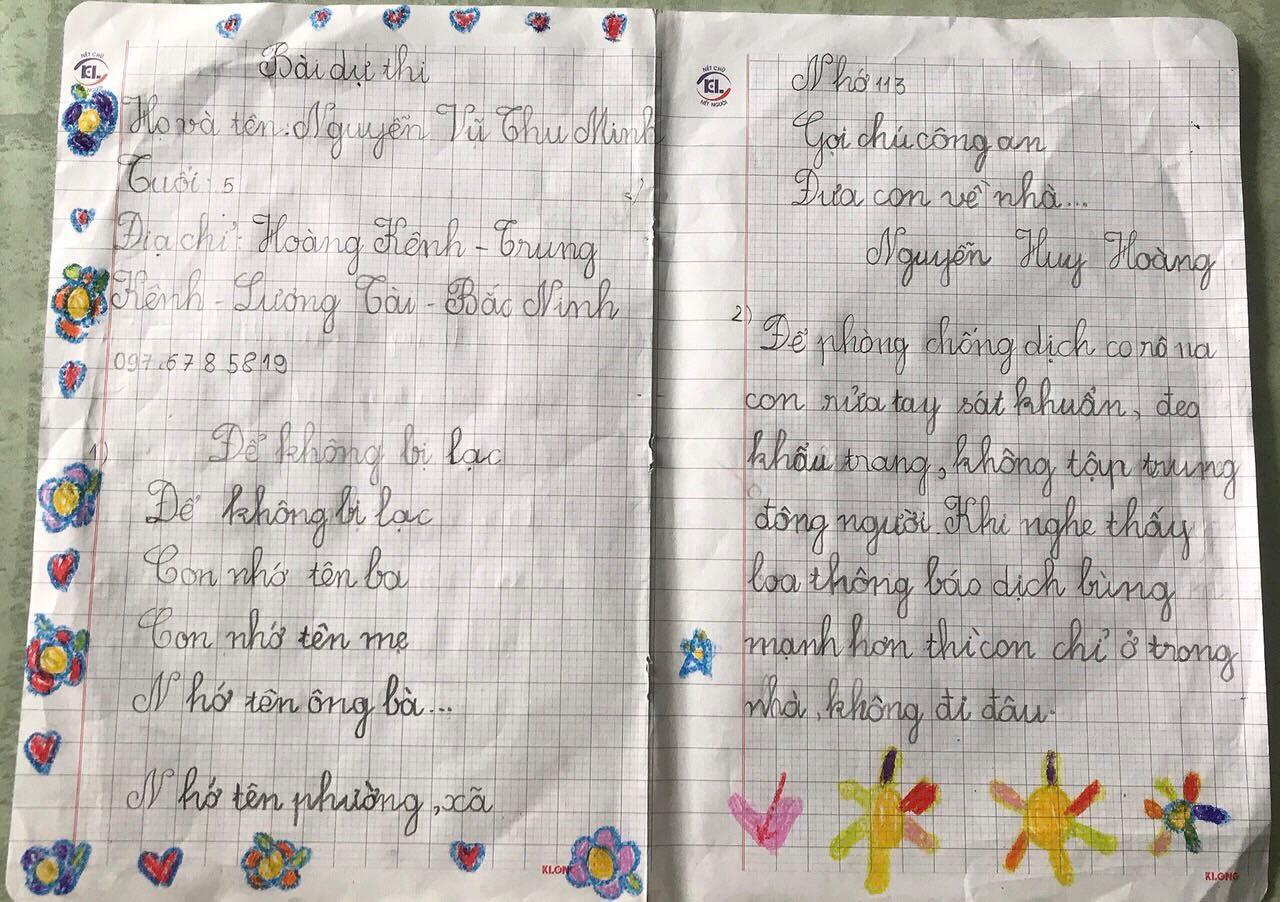 NÉT CHỮ
KL
Bài dự thi
Họ và tên: Nguyễn Vũ Thu Minh
Tuổi: 5
Địa chỉ: Hoàng Kênh - Trung
Kênh - Lương Tài - Bắc Ninh
097.678 5819
1) Để không bị lạc
Để không bị lạc
Con nhớ tên ba
Con nhớ tên mẹ
Nhớ tên ông bà...
Nhớ tên phường, xã
KLONG
NÉT CHỮ
KL
NẾT NGƯỜI
Nhớ 113
Gọi chú công an
Đưa con về nhà...
Nguyễn Huy Hoàng
2) Để phòng chống dịch corôna
con rửa tay sát khuẩn, đeo
khẩu trang, không tập trung
đông người. Khi nghe thấy
loa thông báo dịch bùng
mạnh hơn thì con chỉ ở trong
nhà, không đi đâu.
KLONG